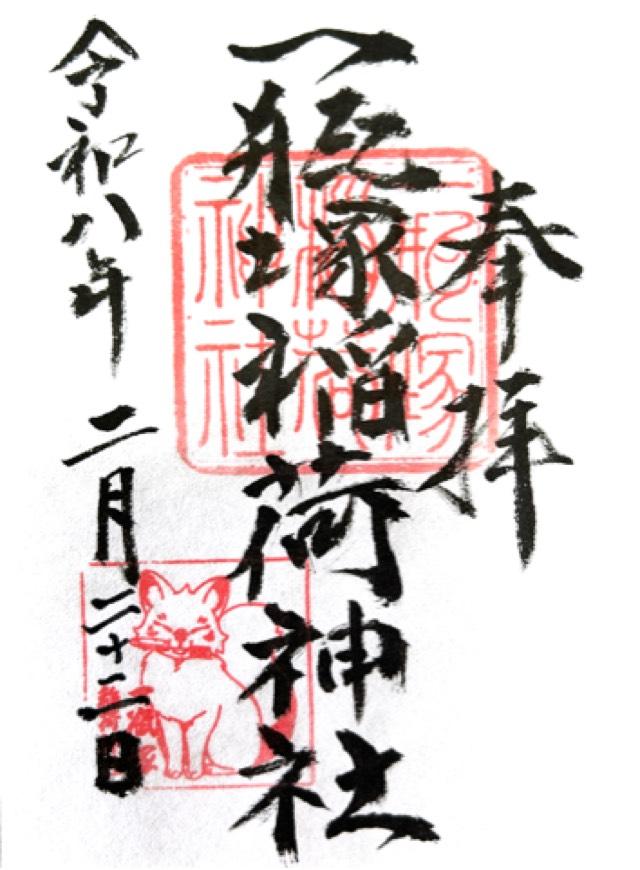 奉拝
一瓶塚稲荷神社
令和八年二月二十二日
一瓶塚
稲荷
神社